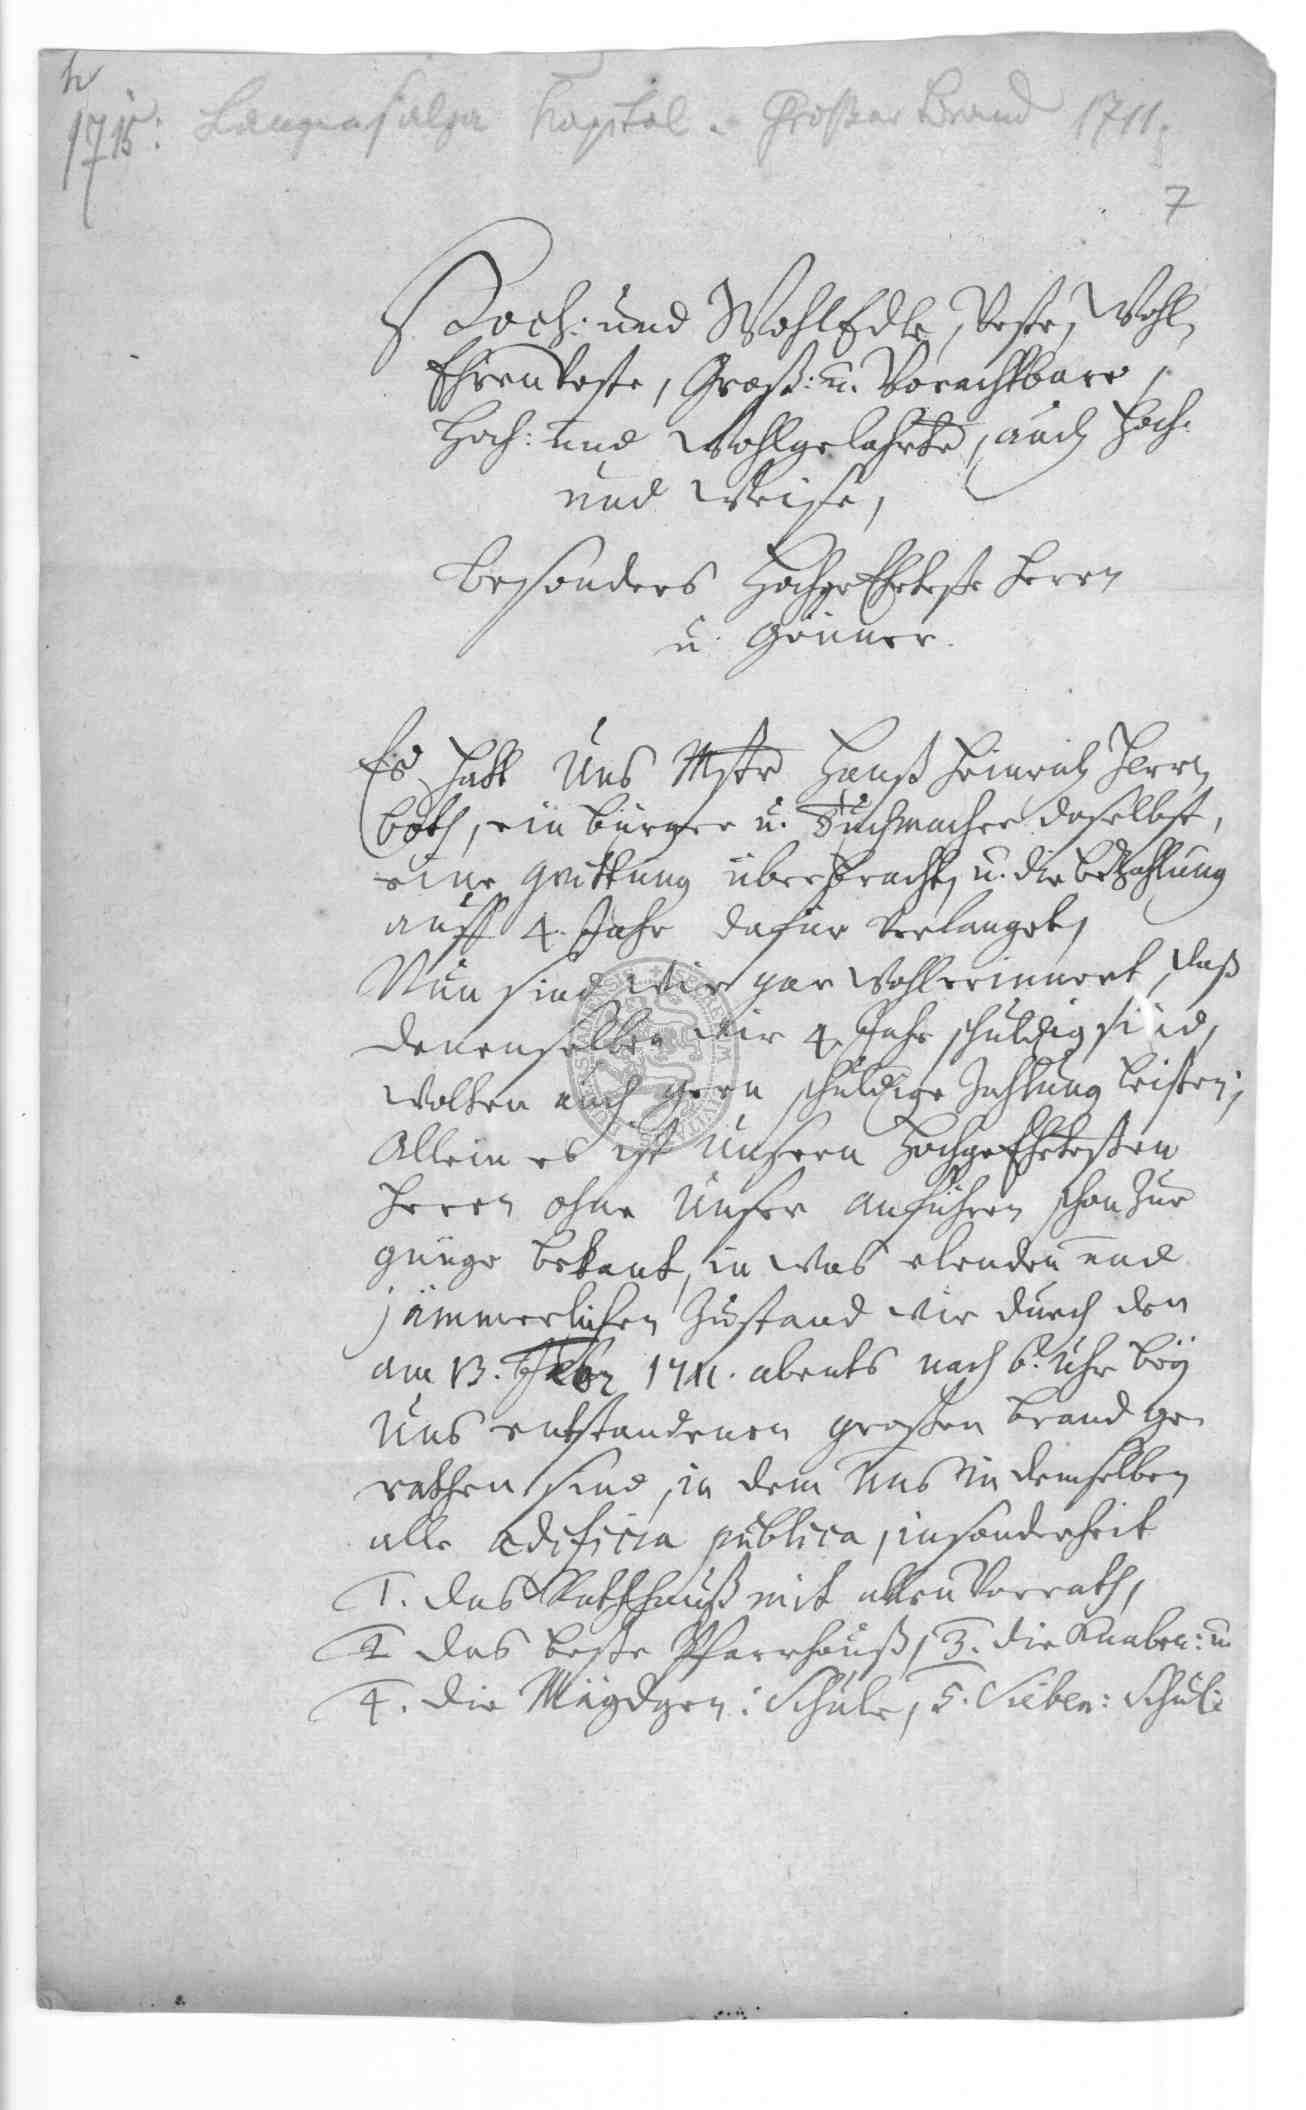 1715: Langensalza Kapital. Großer Brand 1711.
7
Hoch: und WohlEdle, Veste, Wohl
EhrenVeste, Groß: u. Vorachtbare,
Hoch: und Wohlgelahrte, auch Hoch
und Weise,
besonders HochgeEhrteste Herrn
u. Gönner.
Es hatt Uns Mstr Hanß Heinrich Herr
both, ein bürger u. Tuchmacher daselbst,
eine Qvittung überbracht, u. die bezahlung
auff 4. Jahr dafür verlanget,
Nun sind wir gar wohl erinnert, daß
denenselben wir 4. Jahr schuldig sind,
wolten auch gern schuldige Zahlung leisten;
Allein es ist Unsern HochgeEhrtesten
Herrn ohne Unser anführen schon zur
gnüge bekant, in was elenden und
jämmerlichen Zustand wir durch den
am 13. Febr 1711. abents nach 6. Uhr bey
Uns entstandenen großen brand ge
rathen sind, in dem Uns in demselben
alle ædificia publica, insonderheit
1. das Rathhauß mit allen Vorrath,
2 das beste Pfarrhauß, 3. die Knaben: u.
4. die Mägdgen: Schule, 5. Sieben: Schul: